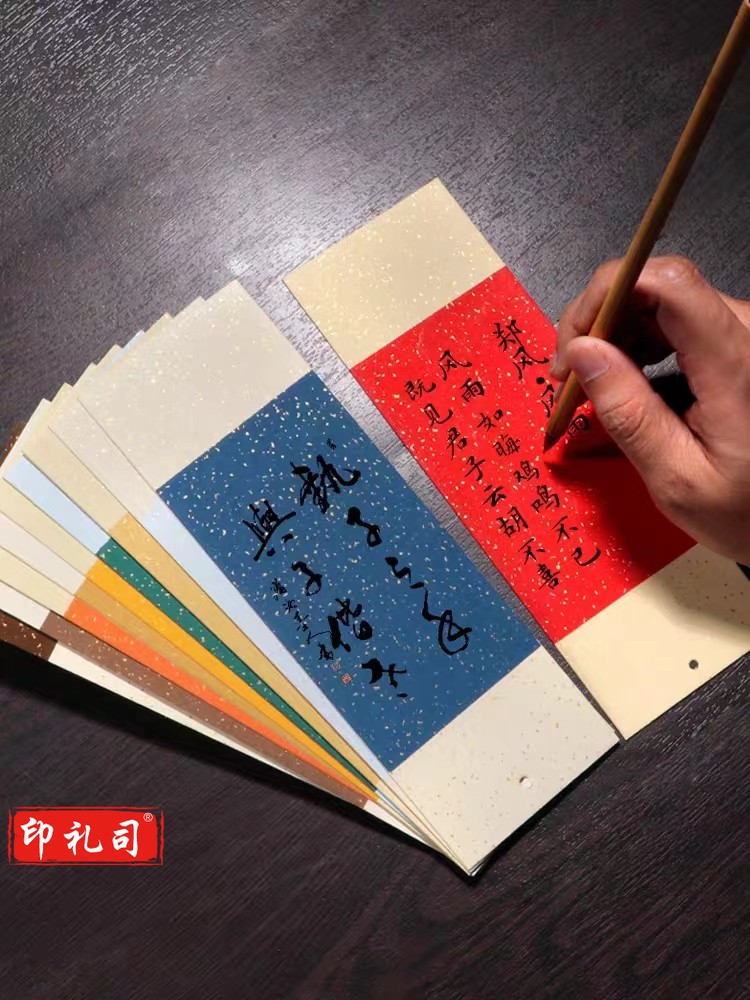 郑风·风雨
风雨如晦鸡鸣不已
既见君子云胡不喜
執子之手
與子偕老
印礼司®